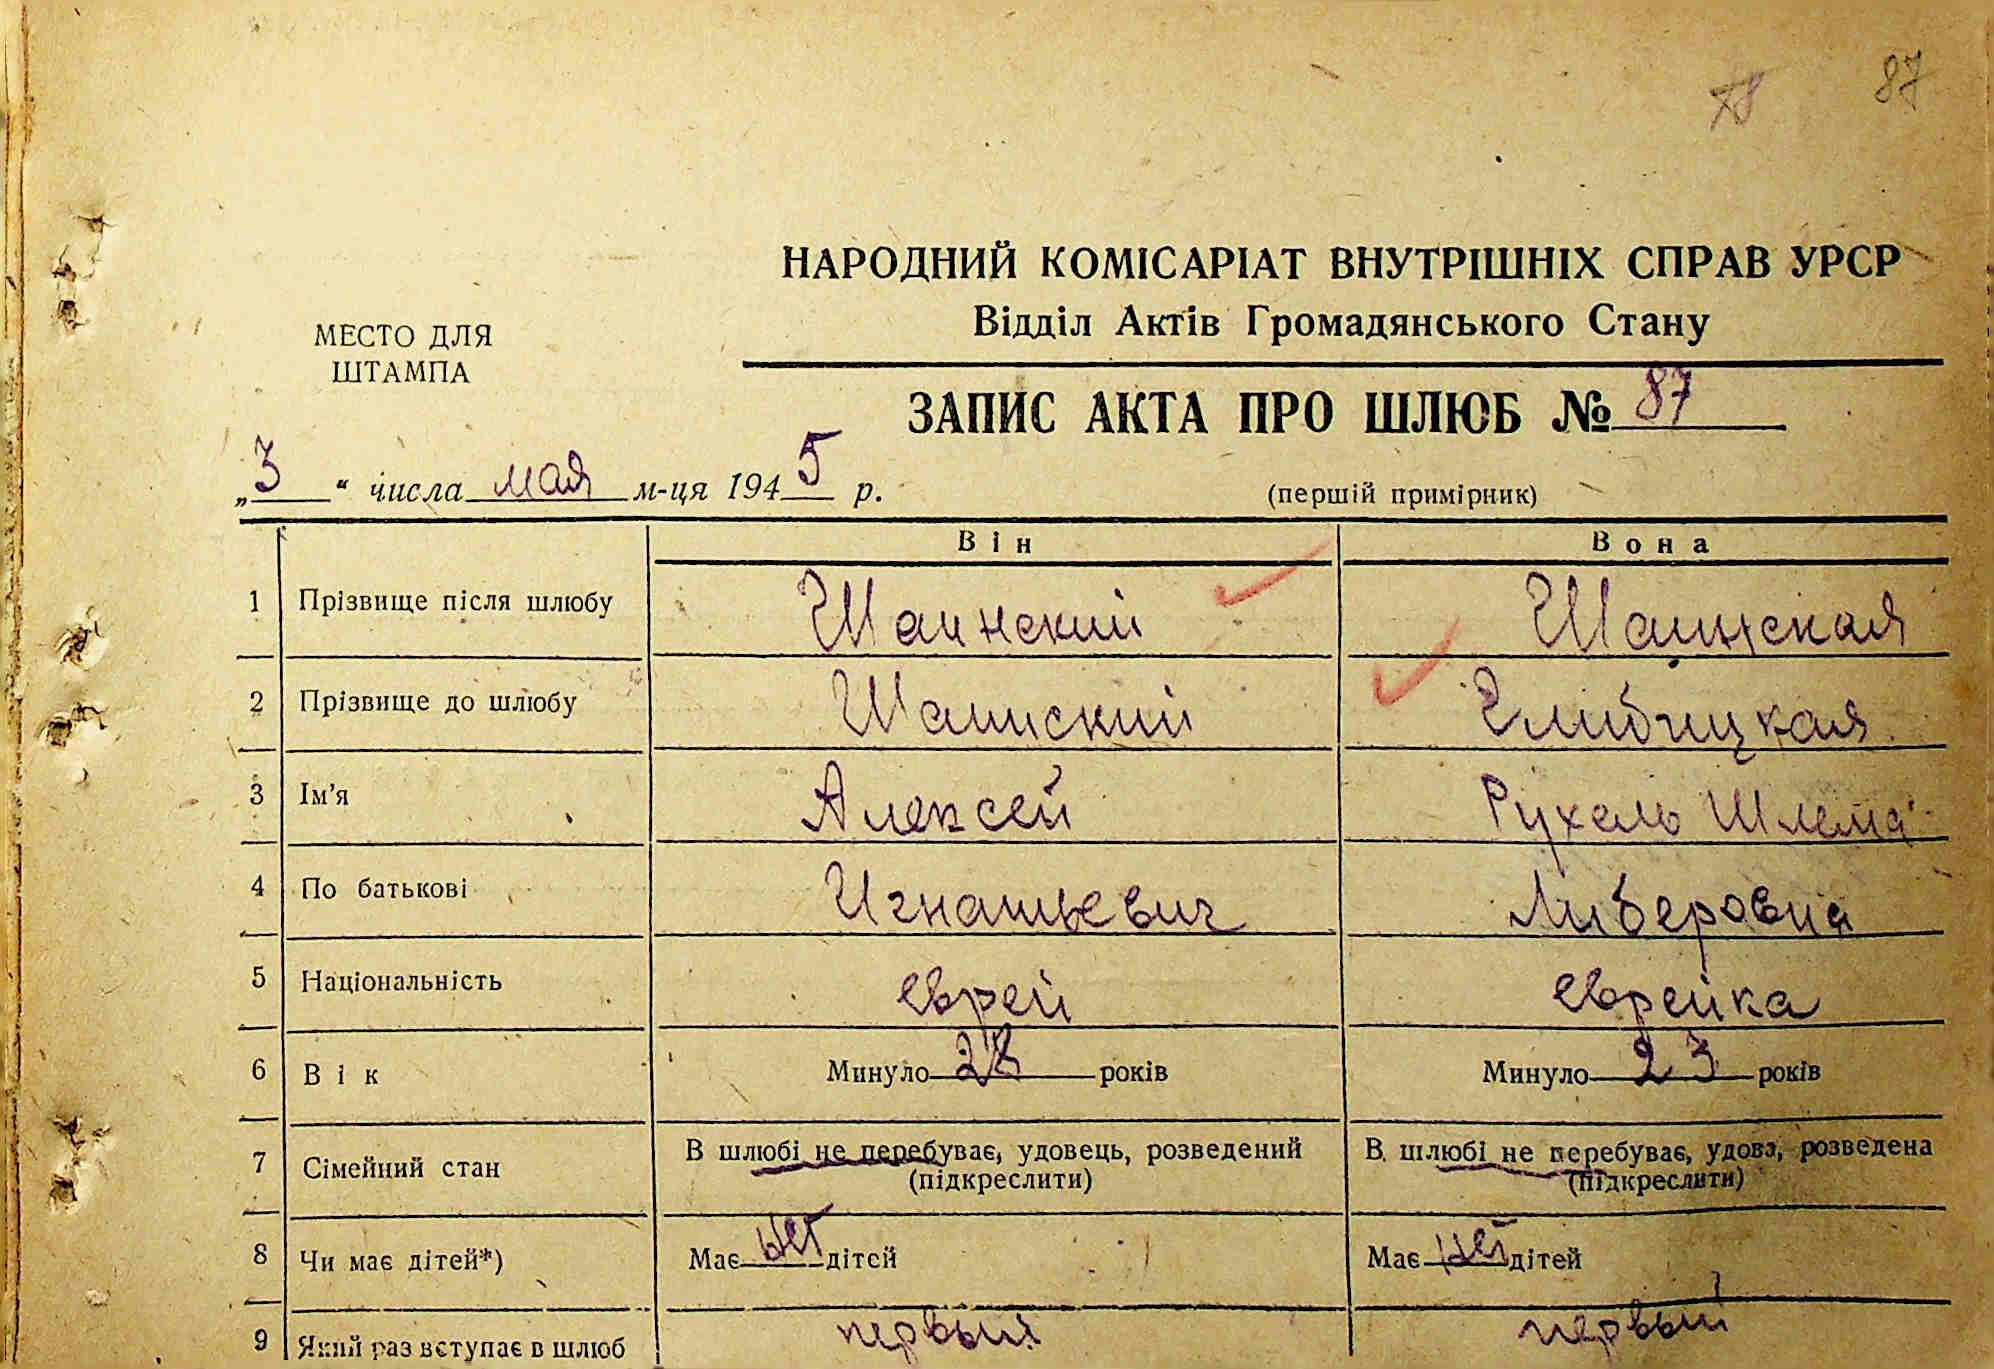 87
НАРОДНИЙ КОМІСАРІАТ ВНУТРІШНІХ СПРАВ УРСР
Відділ Актів Громадянського Стану
МЕСТО ДЛЯ
ШТАМПА
ЗАПИС АКТА ПРО ШЛЮБ № 87
„3“ числа мая м-ця 1945 р.
(першій примірник)
Він Вона
1 Прізвище після шлюбу Шаинский Шаинская
2 Прізвище до шлюбу Шаинский Глибицкая
3 Ім'я Алексей Рухель Шлема
4 По батькові Игнатьевич Либеровна
5 Національність еврей еврейка
6 Вік Минуло 28 років Минуло 23 років
7 Сімейний стан В шлюбі не перебуває, удовець, розведений В шлюбі не перебуває, удова, розведена
(підкреслити) (підкреслити)
8 Чи має дітей*) Має нет дітей Має нет дітей
9 Який раз вступає в шлюб первый первый